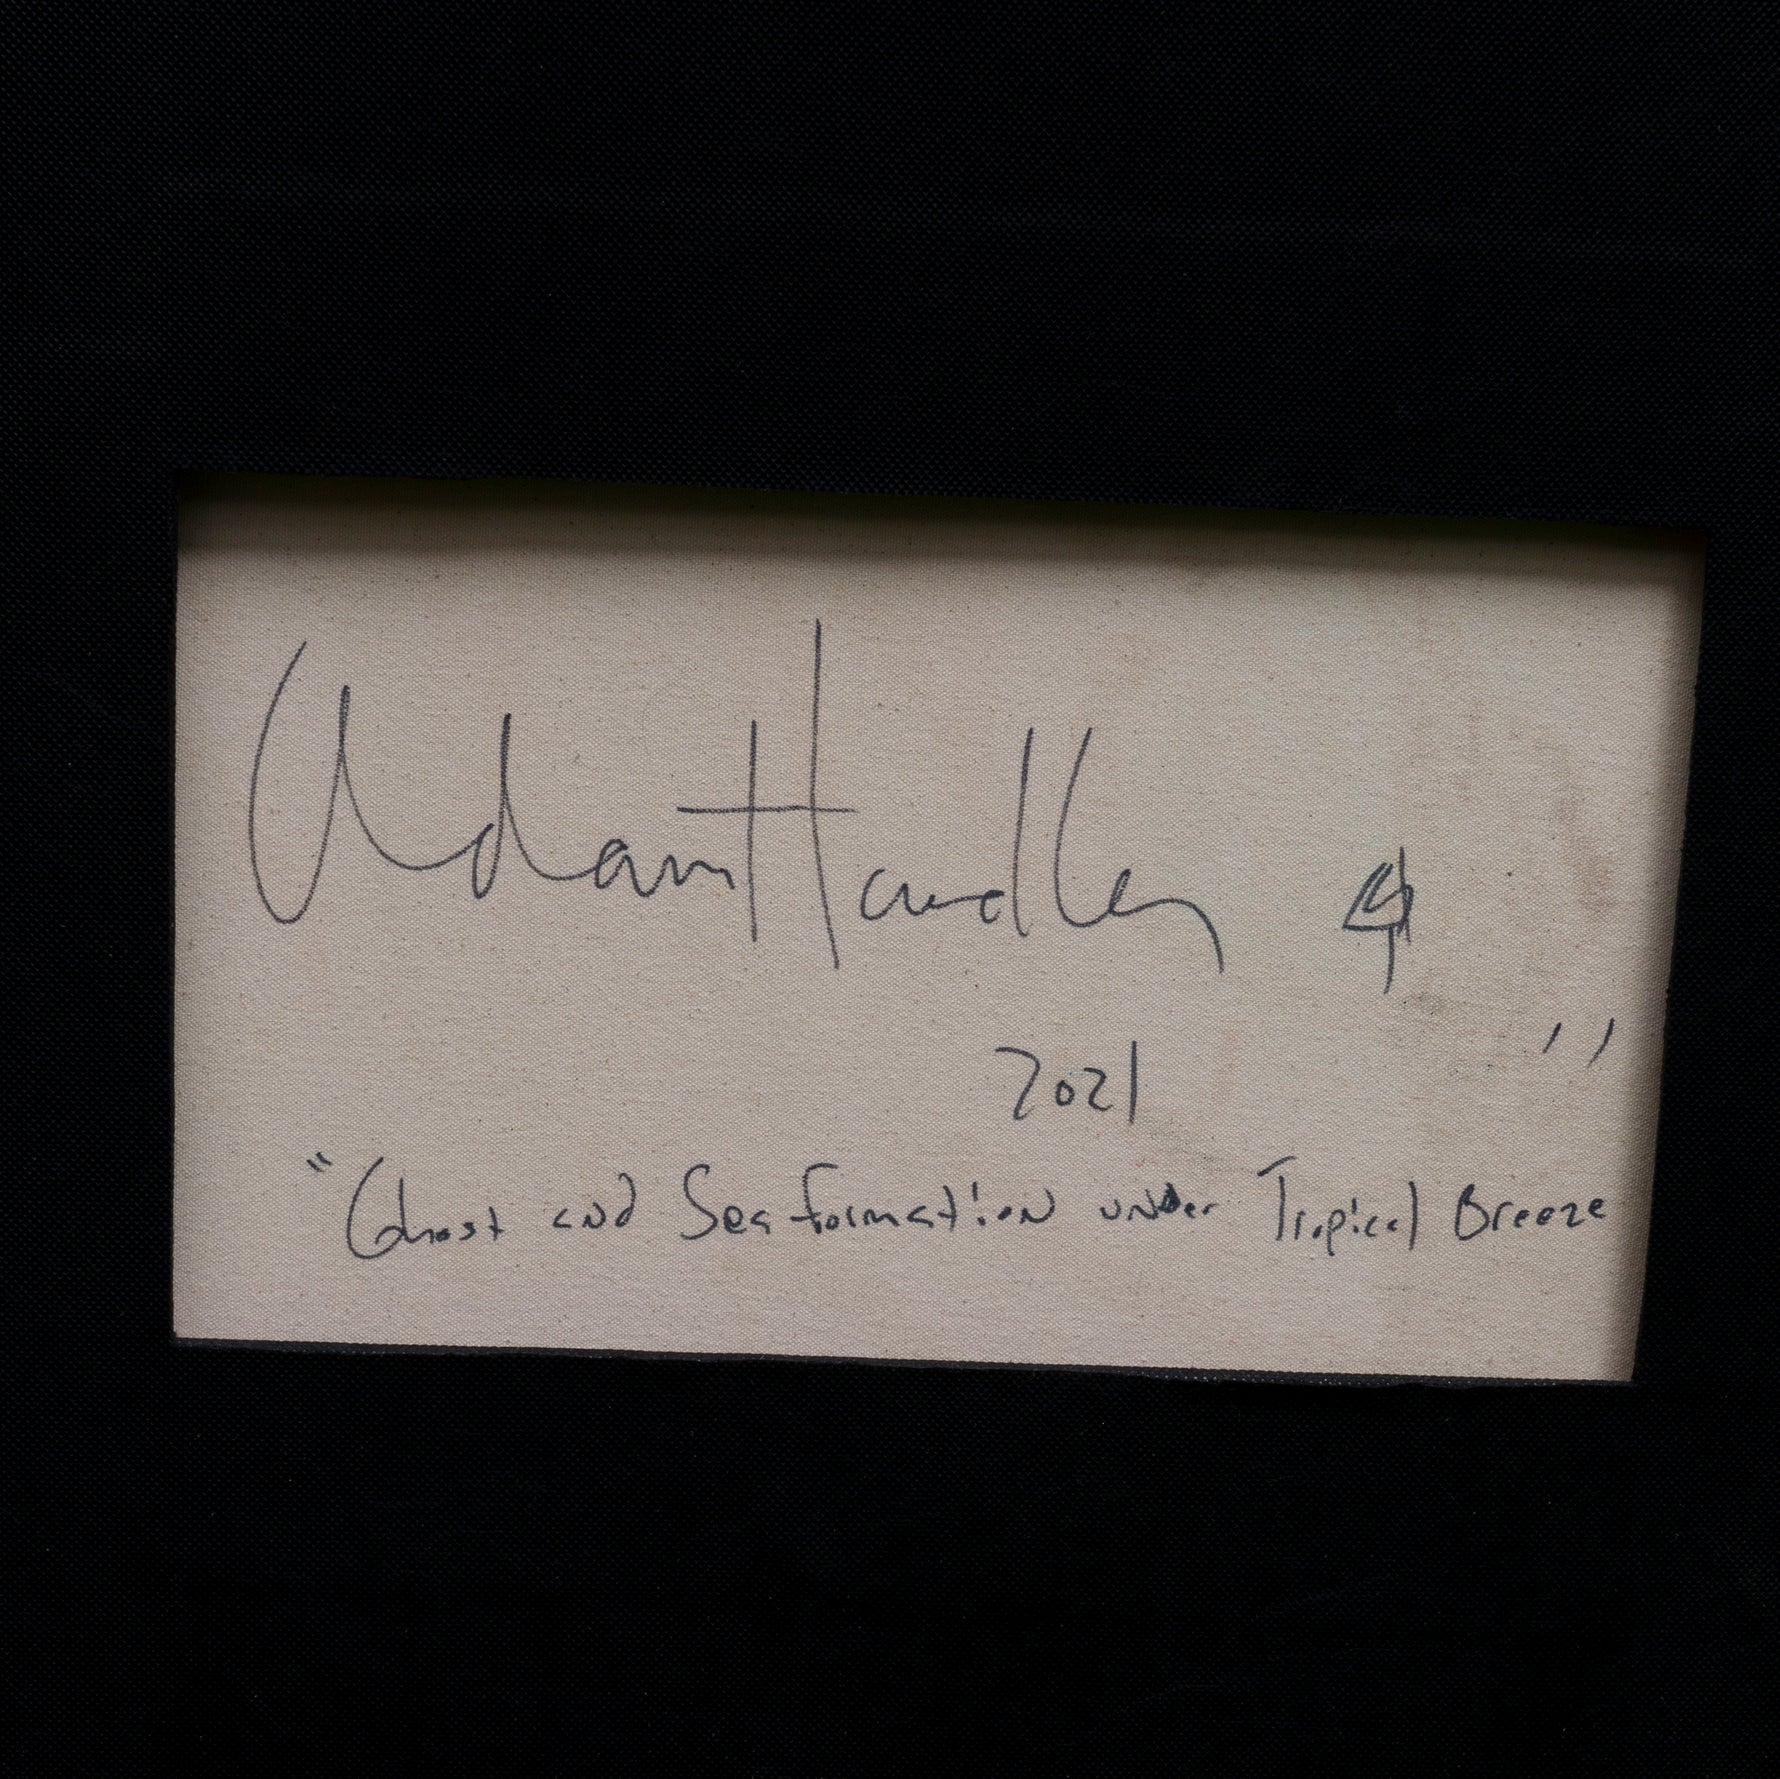 Adam Handler
2021
"Ghost and Sea formation under Tropical Breeze"